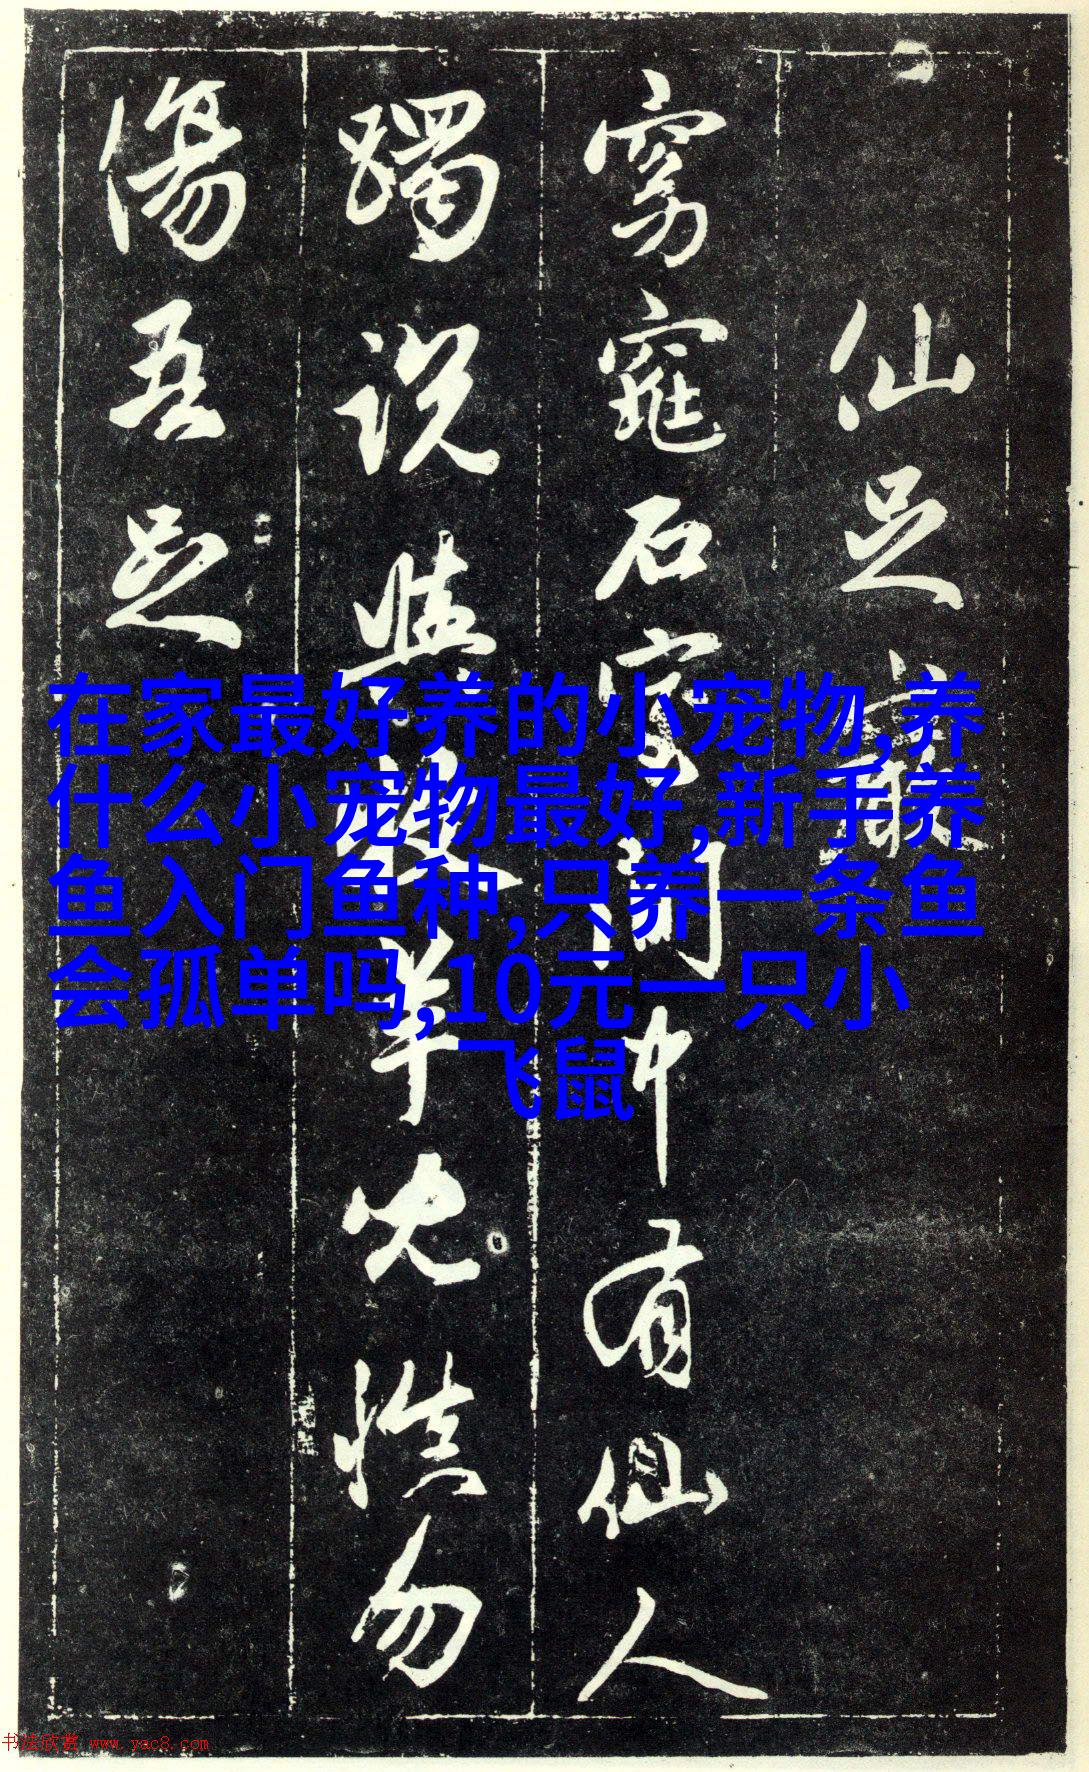 仙足
窈窕石室間中有仙人
躅說與羊兒慎勿
傷吾足
在家最好养的小宠物,养
什么小宠物最好,新手养
鱼入门鱼种,只养一条鱼
会孤单吗,10元一只小
飞鼠
书法欣赏 www.yac8.com